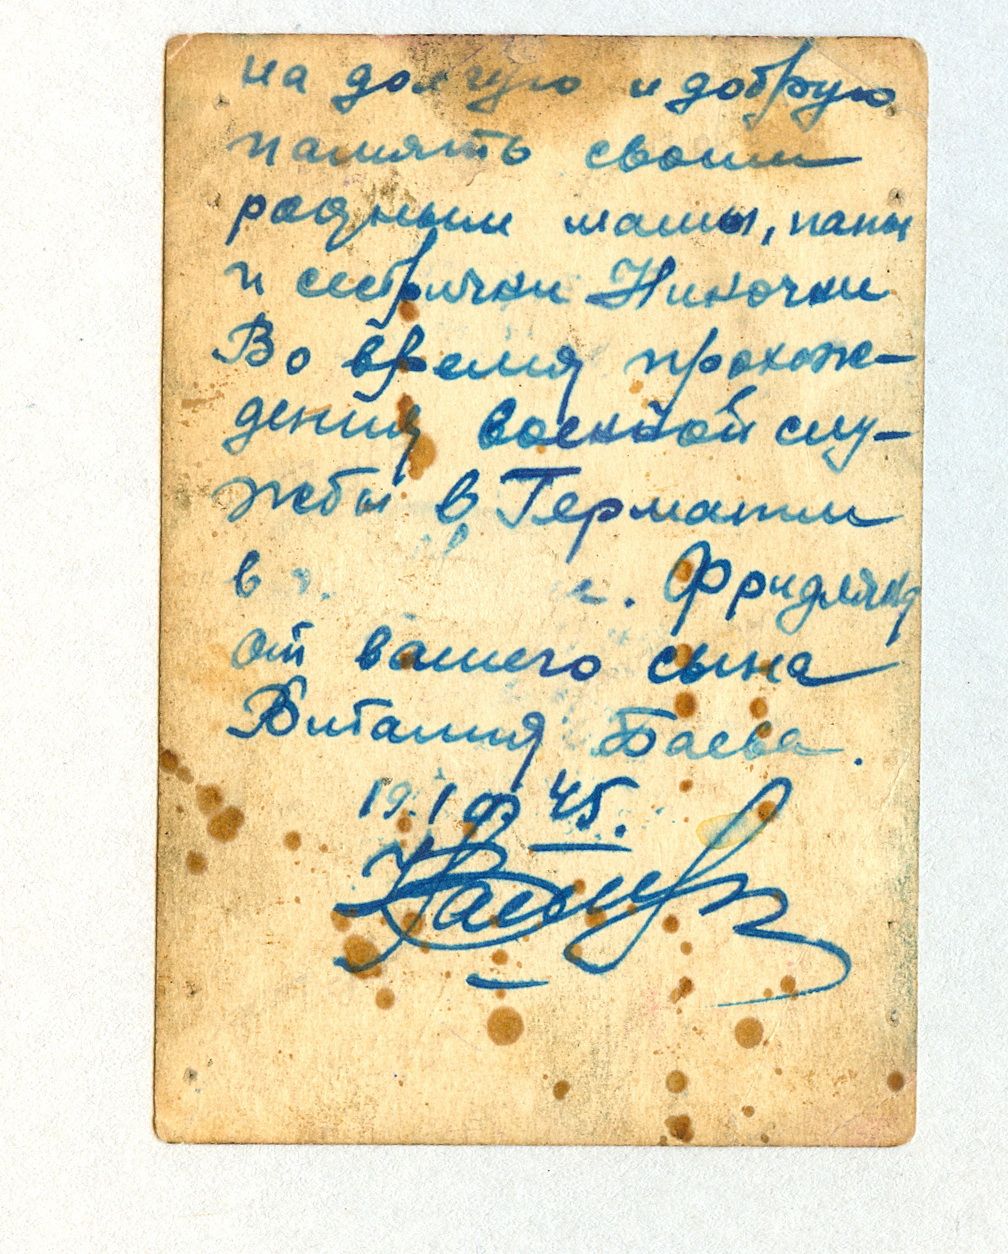 на долгую и добрую
память своим
родным мамы, папы
и сестрички Ниночки
Во время прохож-
дения военной слу-
жбы в Германии
в г. Фридлянд
от вашего сына
Виталия Баева.
19.1 45.